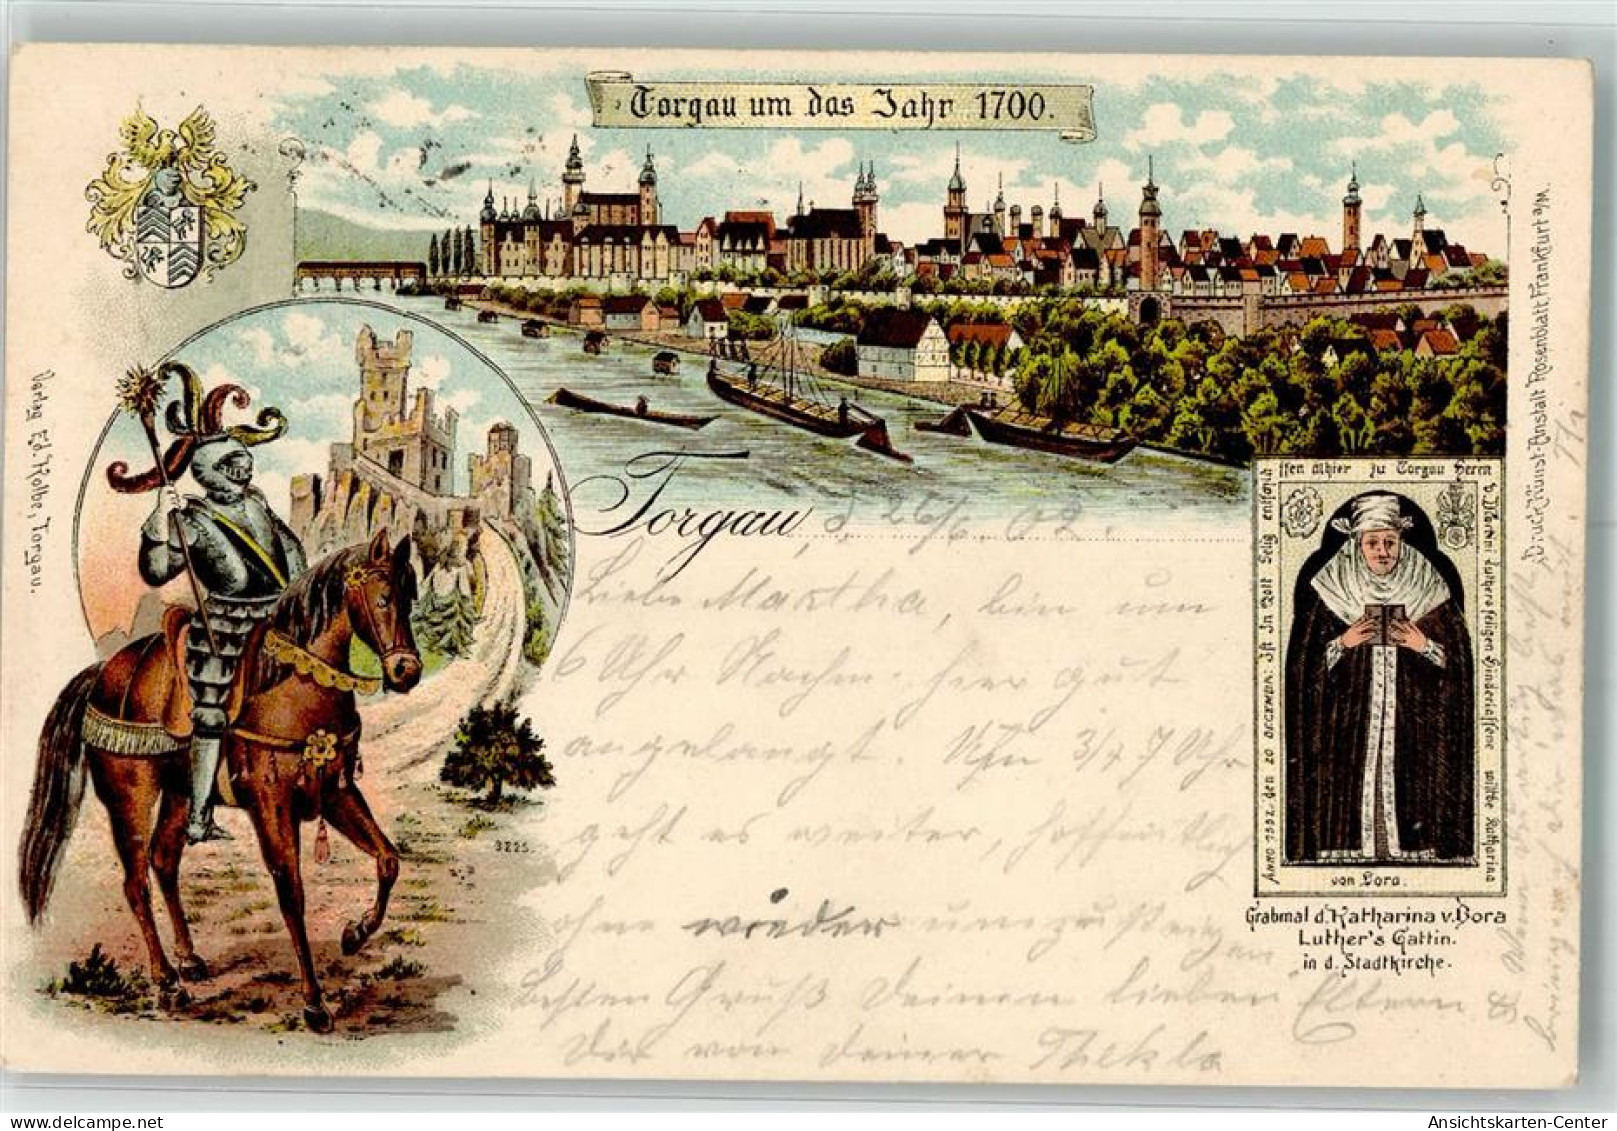 Torgau um das Jahr 1700.
Verlag Ed. Kolbe, Torgau.
Druck Kunst-Anstalt Rosenblatt Frankfurt a/M.
Torgau, d. 26/6 02.
Liebe Martha, bin um
6 Uhr Nachm. hier gut
angelangt. Um 3/4 7 Uhr
geht es weiter, hoffentlich
ohne wieder umzusteigen
besten Gruß Deinen lieben Eltern &
Dir von Deiner Thekla
3225.
ANNO 1552. den 20 DECEMBR: Ist In Gott Selig entschla
ffen alhier zu Torgau Herrn
D. Martini Luthers seligen Hinderlassene wittbe Katharina
von Bora.
Grabmal d. Katharina v. Bora
Luther's Gattin.
in d. Stadtkirche.
Ansichtskarten-Center